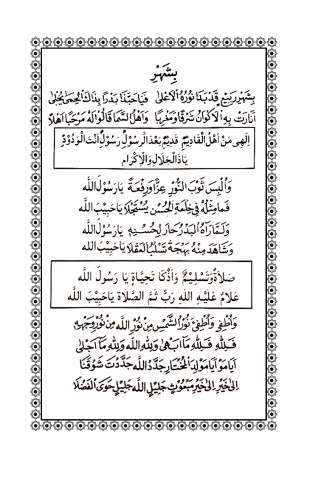 بِشَهْرِ
بِشَهْرِ رَبِيْعٍ قَدْ بَدَا نُوْرُهُ الْأَعْلَى فَيَا حَبَّذَا بَدْرًا بِذَاكَ الْحِمَى يُجْلَى
أَنَارَتْ بِهِ الْأَكْوَانُ شَرْقًا وَمَغْرِبًا وَأَهْلُ السَّمَا قَالُوْا لَهُ مَرْحَبًا أَهْلًا
اِلٰهِي مَنْ أَهْلُ الْقَادِيْمِ قَدِيْمٌ بَعْدَ الرَّسُوْلُ رَسُوْلُ أَنْتَ الْوَدُوْدْ
يَا ذَا الْجَلَالِ وَالْإِكْرَامِ
وَأُلْبِسَ ثَوْبَ النُّوْرِ عِزًّا وَرِفْعَةً يَا رَسُوْلَ اللّٰه
فَمَا مِثْلُهُ فِي خِلْعَةِ الْحُسْنِ يُسْتَجْلَا يَا حَبِيْبَ اللّٰه
وَلَمَّا رَآهُ الْبَدْرُ حَارَ لِحُسْنِهِ يَا رَسُوْلَ اللّٰه
وَشَاهَدَ مِنْهُ بَهْجَةً تَسْلُبُ الْعَقْلَا يَا حَبِيْبَ الله
صَلَاةٌ وَتَسْلِيْمٌ وَأَذْكَا تَحِيَاةٍ يَا رَسُوْلَ الله
عَلَامٌ عَلَيْهِ اللّٰهِ رَبِّ ثُمَّ الصَّلَاةِ يَا حَبِيْبَ الله
وَأُطْفِئَ وَأُطْفِئَ نُوْرُ الشَّمْسِ مِنْ نُوْرِ اللّٰه مِنْ نُوْرِ وَجْهِهِ
فَلِلّٰهِ فَلِلّٰهِ مَا أَبْهَى وَلِلّٰهِ اللّٰه وَلِلّٰهِ مَا أَجْلَى
أَيَا مَوْ أَيَا مَوْلِدَ الْمُخْتَارِ جَدَّدَ اللّٰه جَدَّدْتَ شَوْقَنَا
اِلَى خَيْرِ اِلَى خَيْرِ مَبْعُوْثٍ جَلِيْلٍ اللّٰه جَلِيْلٍ حَوَى الْفَضْلَا